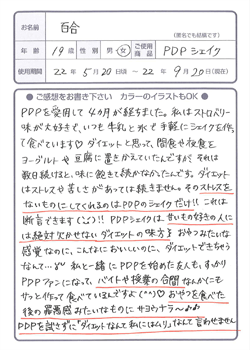 お名前 百合
(匿名でも結構です)
年齢 19歳 性別 男・女 ご使用商品 PDPシェイク
使用期間 22年5月20日頃 〜 22年9月20日(現在)
●ご感想をお書き下さい カラーのイラストもOK●
PDPを愛用して4カ月が経ちました。私はストロベリー
味が大好きで、いつも牛乳と水で手軽にシェイクを作っ
て食べています♡ダイエットと思って、間食や夜食を
ヨーグルトや豆腐に置きかえていたんですが、それは
数日続けると、味に飽きて続かなかったんです。ダイエット
はストレスや苦しさがあっては続きません。そのストレスを
ないものにしてくれるのはPDPのシェイクだけ!!これは
断言できます PDPシェイクは、甘いもの好きの人に
は絶対欠かせないダイエットの味方♪おやつみたいな
感覚なのに、こんなにおいしいのに、ダイエットできちゃう
なんて… 私と一緒にPDPを始めた友人も、すっかり
PDPファンになって、バイトや授業の合間なんかにも
サッと作って食べているんですよ(^^)♡おやつを食べた
後の罪悪感みたいなものにサヨウナラ〜♪♪
PDPを試さずに"ダイエットなんて私にはムリ"なんて言わせません